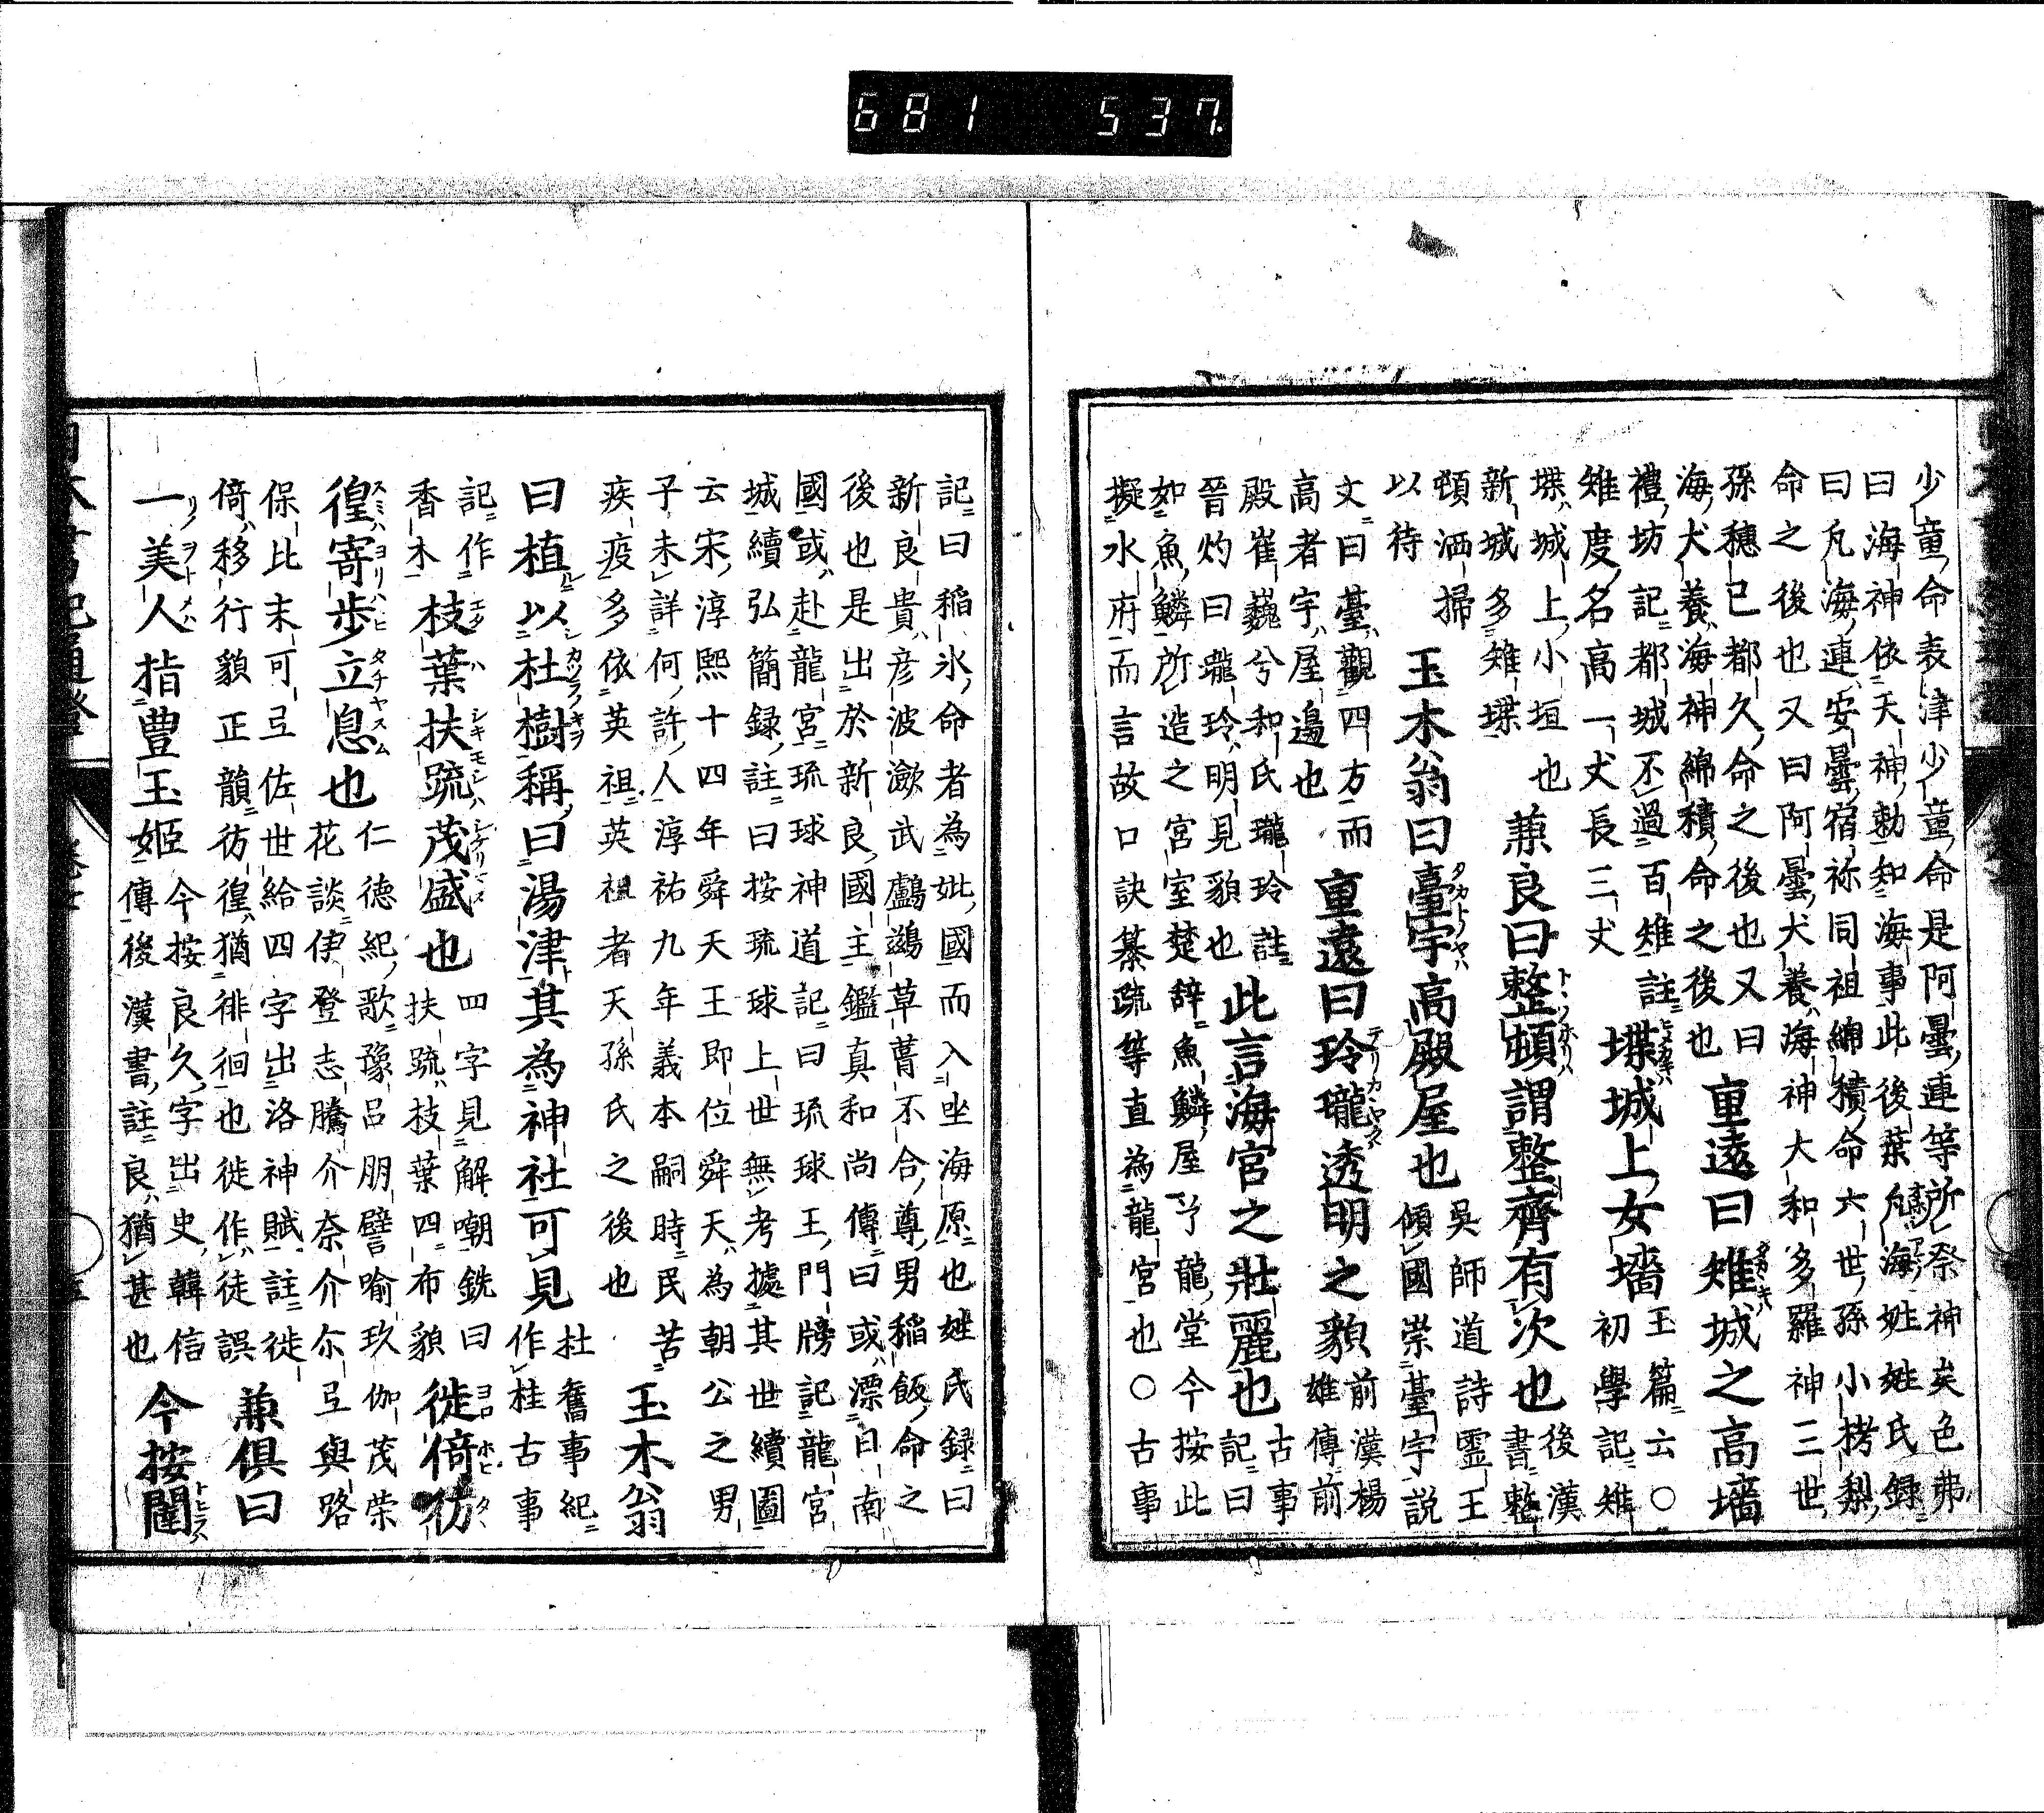 681 537.
少童命表津少童命是阿曇連等所祭神矣色弗
曰海神依天神勅知海事此後葉凡海姓姓氏録
曰凡海連安曇宿祢同祖綿積命六世孫小栲梨
命之後也又曰阿曇犬養海神大和多羅神三世
孫穗己都久命之後也又曰
海犬養海神綿積命之後也
重遠曰雉城之高墻
禮坊記都城不過百雉註
雉度名高一丈長三丈
堞城上女墻
玉篇云○
初學記雉
堞城上小垣也
新城多雉堞
兼良曰整頓謂整齊有次也
後漢
書整
頓洒掃
以待
玉木翁曰臺宇高殿屋也
吳師道詩霊王
傾國崇臺宇説
文曰臺觀四方而
高者宇屋邉也
重遠曰玲瓏透明之貌
前漢楊
雄傳前
殿崔巍兮和氏瓏玲註
晉灼曰瓏玲明見貌也
此言海宮之壯麗也
古事
記曰
如魚鱗所造之宮室楚辞魚鱗屋兮龍堂今按此
擬水府而言故口訣纂疏等直為龍宮也○古事
記曰稲氷命者為妣國而入坐海原也姓氏録曰
新良貴彦波瀲武鸕鷀草葺不合尊男稲飯命之
後也是出於新良國主鑑真和尚傳曰或漂日南
國或赴龍宮琉球神道記曰琉球王門牓記龍宮
城續弘簡録註曰按琉球上世無考據其世續圖
云宋淳熙十四年舜天王即位舜天為朝公之男
子未詳何許人淳祐九年義本嗣時民苦
疾疫多依英祖英祖者天孫氏之後也
玉木翁
曰植以杜樹稱曰湯津其為神社可見
杜舊事紀
作桂古事
記作
香木
枝葉扶疏茂盛也
四字見解嘲銑曰
扶疏技葉四布貌
徙倚彷
徨寄歩立息也
仁德紀歌豫呂朋譬喻玖伽茂柴
花談伊登志騰介奈介尓弖與路
保比末可弖佐世給四字出洛神賦註徙
倚移行貌正韻彷徨猶徘徊也徙作徒誤
兼倶曰
一美人指豊玉姬
今按良久字出史韓信
傳後漢書註良猶甚也
今按闥